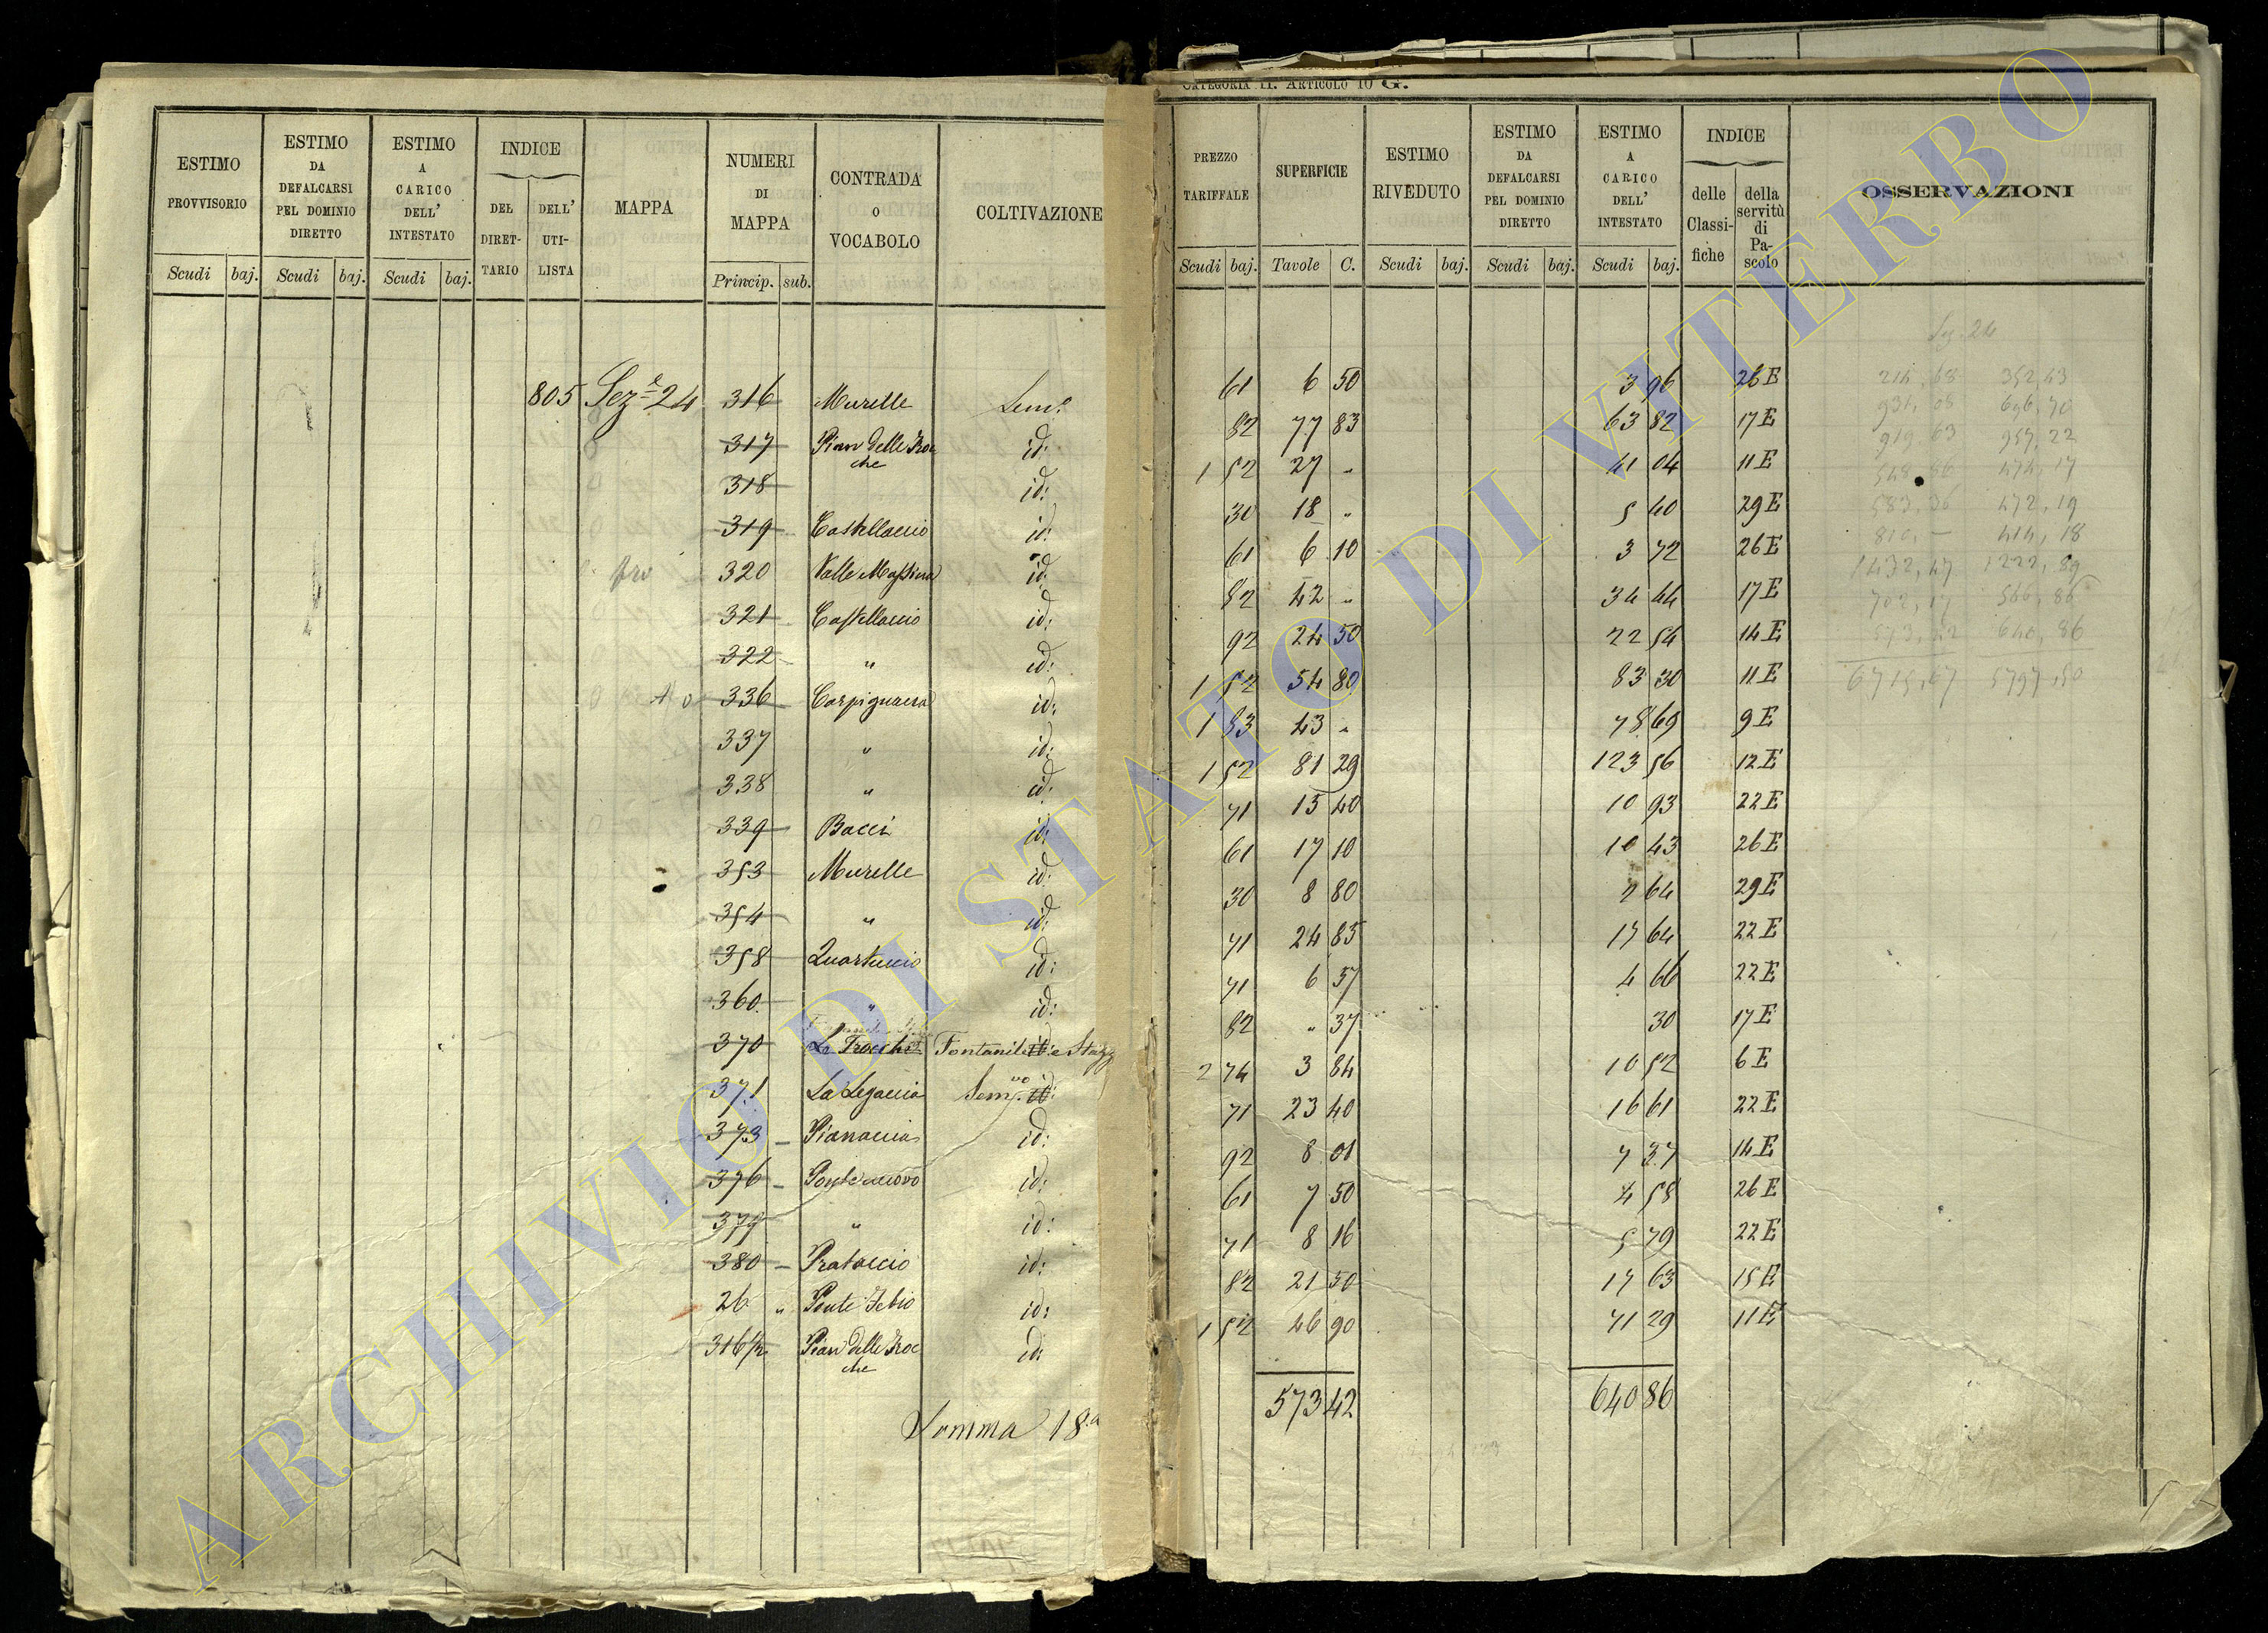 CATEGORIA II. ARTICOLO 10 G.
ESTIMO PROVVISORIO Scudi baj.
ESTIMO DA DEFALCARSI PEL DOMINIO DIRETTO Scudi baj.
ESTIMO A CARICO DELL' INTESTATO Scudi baj.
INDICE DEL DIRETTARIO DELL' UTILISTA
MAPPA
NUMERI DI MAPPA Princip. sub.
CONTRADA O VOCABOLO
COLTIVAZIONE
PREZZO TARIFFALE Scudi baj.
SUPERFICIE Tavole C.
ESTIMO RIVEDUTO Scudi baj.
ESTIMO DA DEFALCARSI PEL DOMINIO DIRETTO Scudi baj.
ESTIMO A CARICO DELL' INTESTATO Scudi baj.
INDICE delle Classifiche della servitù di Pascolo
OSSERVAZIONI
805 Sez.e 24 316 Murelle Sem.o 61 6 50 3 96 26 E
317 Pian delle Rocche id: 82 77 83 63 82 17 E
318 id: 1 52 27 " 41 04 11 E
319 Castellaccio id: 30 18 " 5 40 29 E
320 Valle Massina id: 61 6 10 3 72 26 E
321 Castellaccio id: 82 42 " 34 44 17 E
322 " id: 92 24 50 22 54 14 E
336 Carpignacea id: 1 52 54 80 83 30 11 E
337 " id: 1 83 43 " 78 69 9 E
338 " id: 1 52 81 29 123 56 12 E
339 Bacci id: 71 15 40 10 93 22 E
353 Murelle id: 61 17 10 10 43 26 E
354 " id: 30 8 80 2 64 29 E
358 Quartuccio id: 71 24 85 17 64 22 E
360 " id: 71 6 57 4 66 22 E
370 Le Trocche Fontanile e Stazz 82 " 37 30 17 E
371 La Legaccia Sem.vo 2 74 3 84 10 52 6 E
373 Pianaccia id: 71 23 40 16 61 22 E
376 Ponte nuovo id: 92 8 01 7 37 14 E
377 " id: 61 7 50 4 58 26 E
380 Prataccio id: 71 8 16 5 79 22 E
26 " Ponte Febio id: 82 21 50 17 63 15 E
316/2 Pian delle Rocche id: 1 52 46 90 71 29 11 E
Somma 18.a 573 42 640 86
Sez. 24
214,68 352,43
931,05 696,70
919,63 957,22
548,86 474,17
583,36 472,19
810,— 414,18
1432,47 1222,89
702,17 566,86
573,42 640,86
6715,67
ARCHIVIO DI STATO DI VITERBO